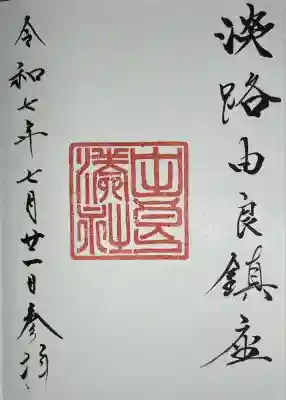 淡路由良鎮座
由良
湊社
令和七年七月廿一日参拝